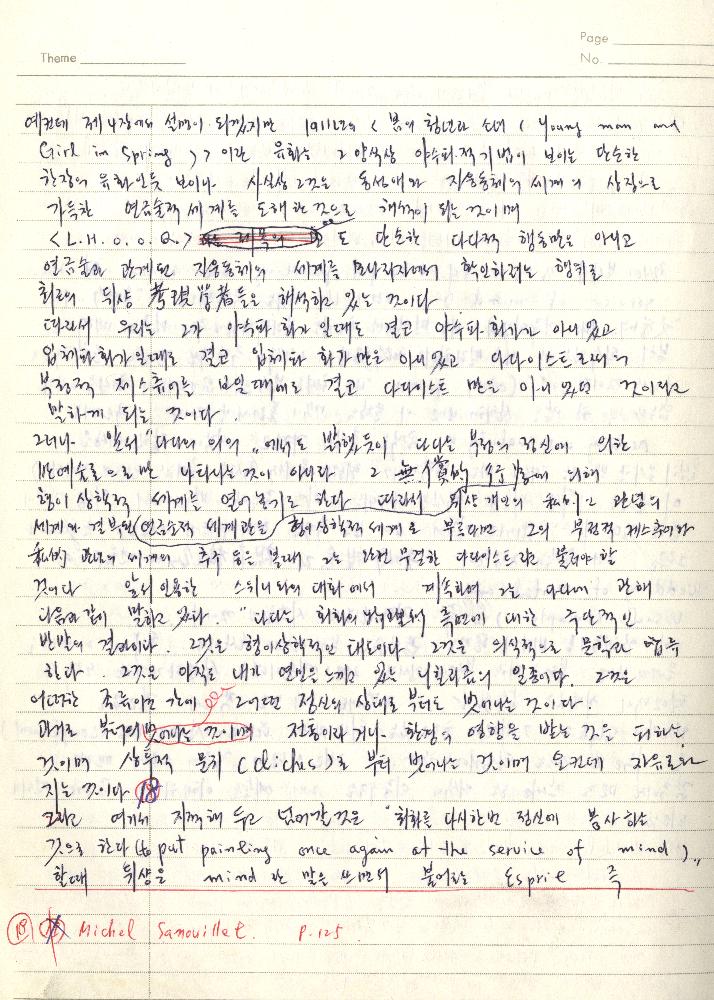 Page
Theme
No.
예컨데 제4장에서 설명이 되겠지만 1911년의 <봄의 청년과 소녀 (Young man and
Girl in Spring)> 이란 유화는 그 양식상 야수파적 기법이 보이는 단순한
한장의 유화인듯 보이나 사실상 그것은 동성애와 자웅동체의 세계의 상징으로
가득한 연금술적 세계를 도해한 것으로 해석이 되는 것이며
<L.H.O.O.Q.> 도 단순한 다다적 행동만은 아니고
연금술과 관계된 자웅동체의 세계를 모나리자에서 확인하려는 행위로
최근의 뒤샹 학자들은 해석하고 있는 것이다
따라서 우리는 그가 야수파 화가 일때도 결코 야수파 화가가 아니었고
입체파 화가 일때도 결코 입체파 화가 만은 아니었고 다다이스트로써의
부정적 제스츄어를 보일때에도 결코 다다이스트 만은 아니었던 것이라고
말하게 되는 것이다.
그러나 앞서 "다다의 의의"에서도 밝혔듯이 다다는 부정의 정신에 의한
반예술로으로만 나타나는 것이 아니라 그 無償的 행동에 의해
형이상학적 세계를 열어놓기도 한다 따라서 뒤샹 개인의 私的 관념의
세계와 결부된 연금술적 세계관을 형이상학적 세계로 부른다면 그의 부정적 제스츄어와
私的 관념의 세계의 추구 등을 볼때 그는 완전 무결한 다다이스트라고 불려야 할
것이다 앞서 인용한 스위니와의 대화에서 계속하여 그는 다다에 관해
다음과 같이 말하고 있다. "다다는 회화의 물질적 측면에 대한 극단적인
반발의 결과이다. 그것은 형이상학적인 태도이다 그것은 의식적으로 문학과
한다. 그것은 아직도 내가 연민을 느끼고 있는 니힐리즘의 일종이다. 그것은
어떠한 종류이건 간에 그어떤 정신의 상태로 부터도 벗어나는 것이다.
과거로 부터의 벗어나는 것이며 전통이라거나 환경의 영향을 받는 것은 피하는
것이며 상투적 문귀 (clichés)로 부터 벗어나는 것이며 요컨데 자유로와
지는 것이다 18
그리고 여기서 지적해 두고 넘어갈 것은 "회화를 다시한번 정신에 봉사하는
것으로 한다 (to put painting once again at the service of mind)"
할때 뒤샹은 mind 란 말을 쓰면서 불어로는 Esprit 즉
18 Michel Sanouillet. P.125